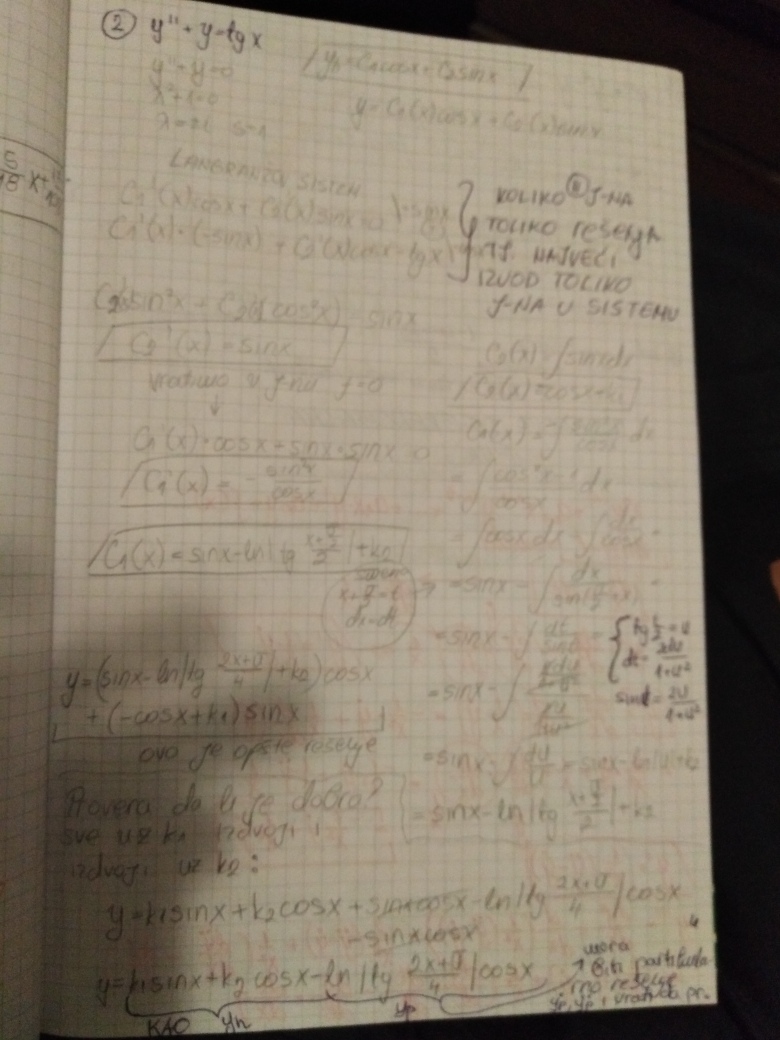 ② y'' + y = tg x
y'' + y = 0
λ² + 1 = 0
yh = C1cosx + C2sinx
y = C1(x)cosx + C2(x)sinx
LANGRANŽOV SISTEM
C1'(x)cosx + C2'(x)sinx = 0 / · sinx
C1'(x) · (-sinx) + C2'(x)cosx = tgx
KOLIKO J-NA
TOLIKO REŠENJA
TJ. NAJVEĆI
IZVOD TOLIKO
J-NA U SISTEMU
C2'(x)sin²x + C2'(x)cos²x = sinx
C2'(x) = sinx
vratimo u j-nu j=0
↓
C1'(x) · cosx + sinx · sinx = 0
C1'(x) = - sin²x / cosx
C1(x) = sinx - ln|tg (x + π/2)/2| + k2
smena
x + π/2 = t
dx = dt
C2(x) = ∫sinxdx
C2(x) = -cosx + k1
C1(x) = -∫ sin²x/cosx dx
= ∫ (cos²x - 1)/cosx dx
= ∫cosx dx - ∫ dx/cosx =
= sinx - ∫ dx/sin(π/2 + x) =
= sinx - ∫ dt/sint =
tg t/2 = u
dt = 2du/(1+u²)
sint = 2u/(1+u²)
= sinx - ∫ (2du/(1+u²))/(2u/(1+u²))
= sinx - ∫ du/u = sinx - ln|u| + k2
= sinx - ln|tg (x + π/2)/2| + k2
y = (sinx - ln|tg (2x+π)/4| + k2)cosx
+ (-cosx + k1)sinx
ovo je opšte rešenje
Provera da li je dobro?
sve uz k1 izdvoji i
izdvoji uz k2:
y = k1sinx + k2cosx + sinxcosx - ln|tg (2x+π)/4|cosx
- sinxcosx
y = k1sinx + k2cosx - ln|tg (2x+π)/4|cosx
KAO yh
yp
mora
biti partikula
rno rešenje